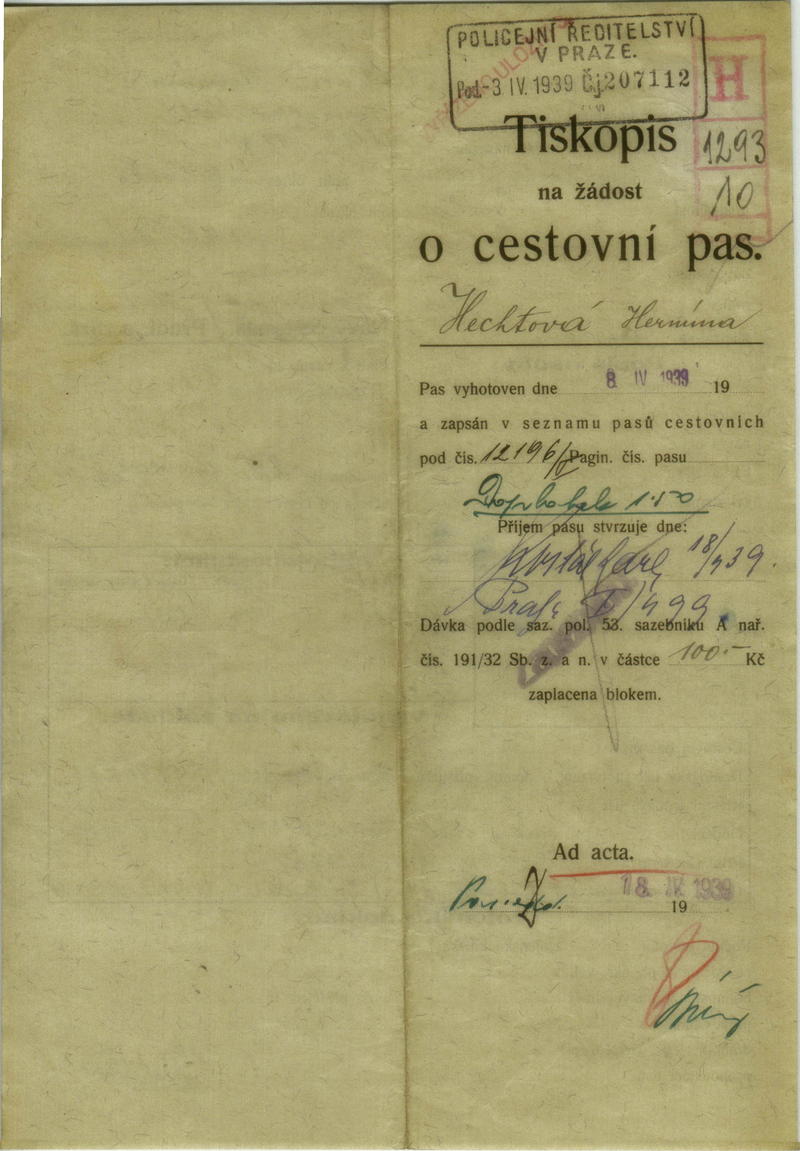 POLICEJNÍ ŘEDITELSTVÍ
V PRAZE.
Pod. -3 IV. 1939 Čj. 207112
H
1293
10
Tiskopis
na žádost
o cestovní pas.
Hechtová Hermína
Pas vyhotoven dne 8 IV 1939 19
a zapsán v seznamu pasů cestovních
pod čís. 12196/ Pagin. čís. pasu
Doplatek 1.50
Příjem pasu stvrzuje dne:
18/ 939.
Dávka podle saz. pol. 53. sazebníku A nař.
čís. 191/32 Sb. z. a n. v částce 100.- Kč
zaplacena blokem.
Ad acta.
18. IV. 1939
19